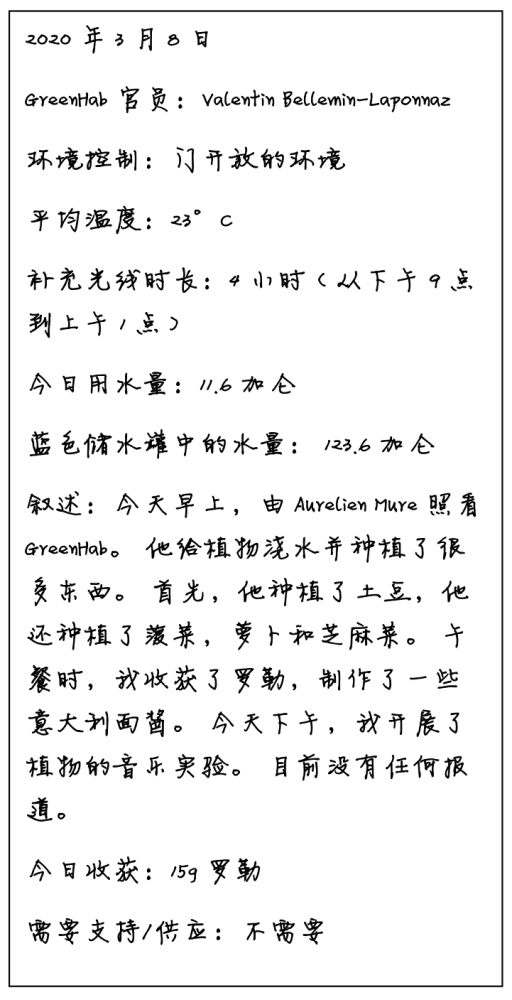 2020 年 3 月 8 日
GreenHab 官员: Valentin Bellemin-Laponnaz
环境控制: 门开放的环境
平均温度: 23° C
补充光线时长: 4 小时 (从下午 9 点
到上午 1 点)
今日用水量: 11.6 加仑
蓝色储水罐中的水量: 123.6 加仑
叙述: 今天早上, 由 Aurelien Mure 照看
GreenHab。 他给植物浇水并种植了很
多东西。 首先, 他种植了土豆, 他
还种植了菠菜, 萝卜和芝麻菜。 午
餐时, 我收获了罗勒, 制作了一些
意大利面酱。 今天下午, 我开展了
植物的音乐实验。 目前没有任何报
道。
今日收获: 15g 罗勒
需要支持/供应: 不需要